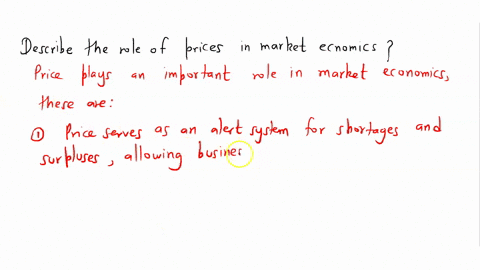 Describe the role of prices in market ecnomics ?
Price plays an important role in market economics,
these are:
① Price serves as an alert system for shortages and
surpluses, allowing busines